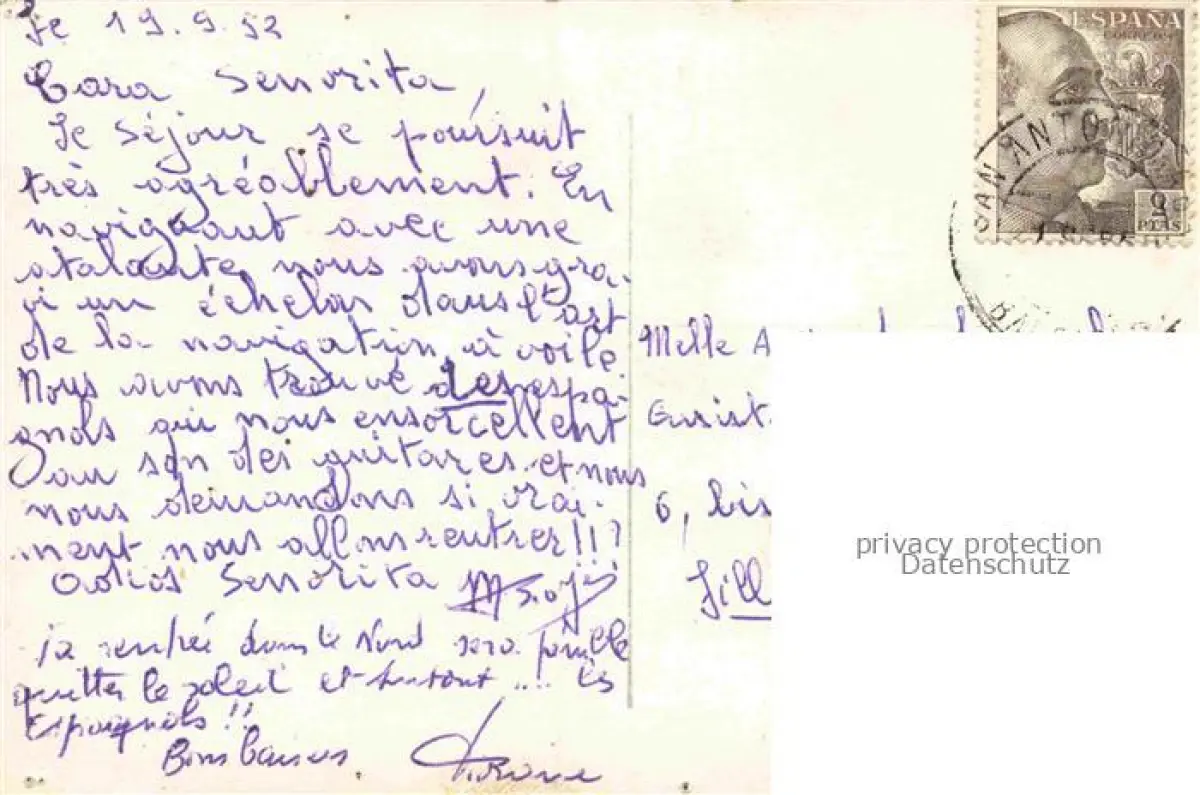 le 19.9.52
Cara Senorita,
Le séjour se poursuit
très agréablement. En
naviguant avec une
atalante, nous avons gra-
vi un échelon dans l'art
de la navigation à voile.
Nous avons trouvé des espa-
gnols qui nous ensorcellent
au son des guitares et nous
nous demandons si vrai-
ment nous allons rentrer!!!
Adios Senorita
la rentrée dans le Nord sera pénible
quitter le soleil et surtout .... les
Espagnols!!
Bons baisers
ESPAÑA
CORREOS
PTAS
SAN ANTO
Melle A
6, bis
Lill
privacy protection
Datenschutz